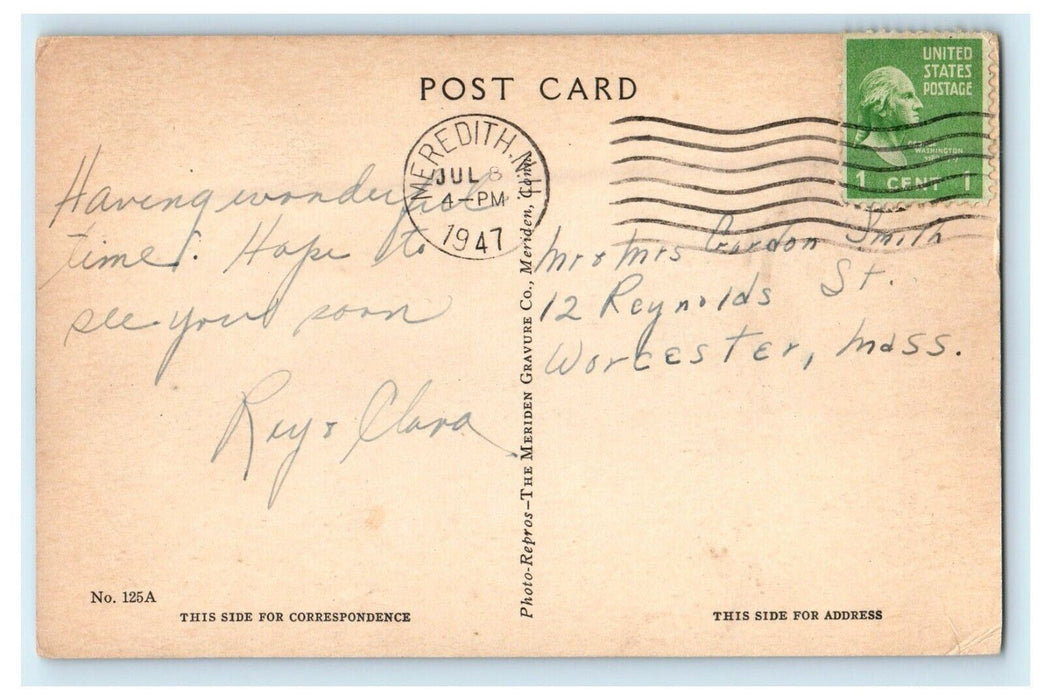 POST CARD
UNITED
STATES
POSTAGE
WASHINGTON
1 CENT 1
MEREDITH, N.H.
JUL 8
4-PM
1947
Having wonderful
time. Hope to
see you soon
Ray & Clara
Mr & Mrs Gordon Smith
12 Reynolds St.
Worcester, Mass.
Photo-Repros–THE MERIDEN GRAVURE CO., Meriden, Conn.
No. 125A
THIS SIDE FOR CORRESPONDENCE
THIS SIDE FOR ADDRESS